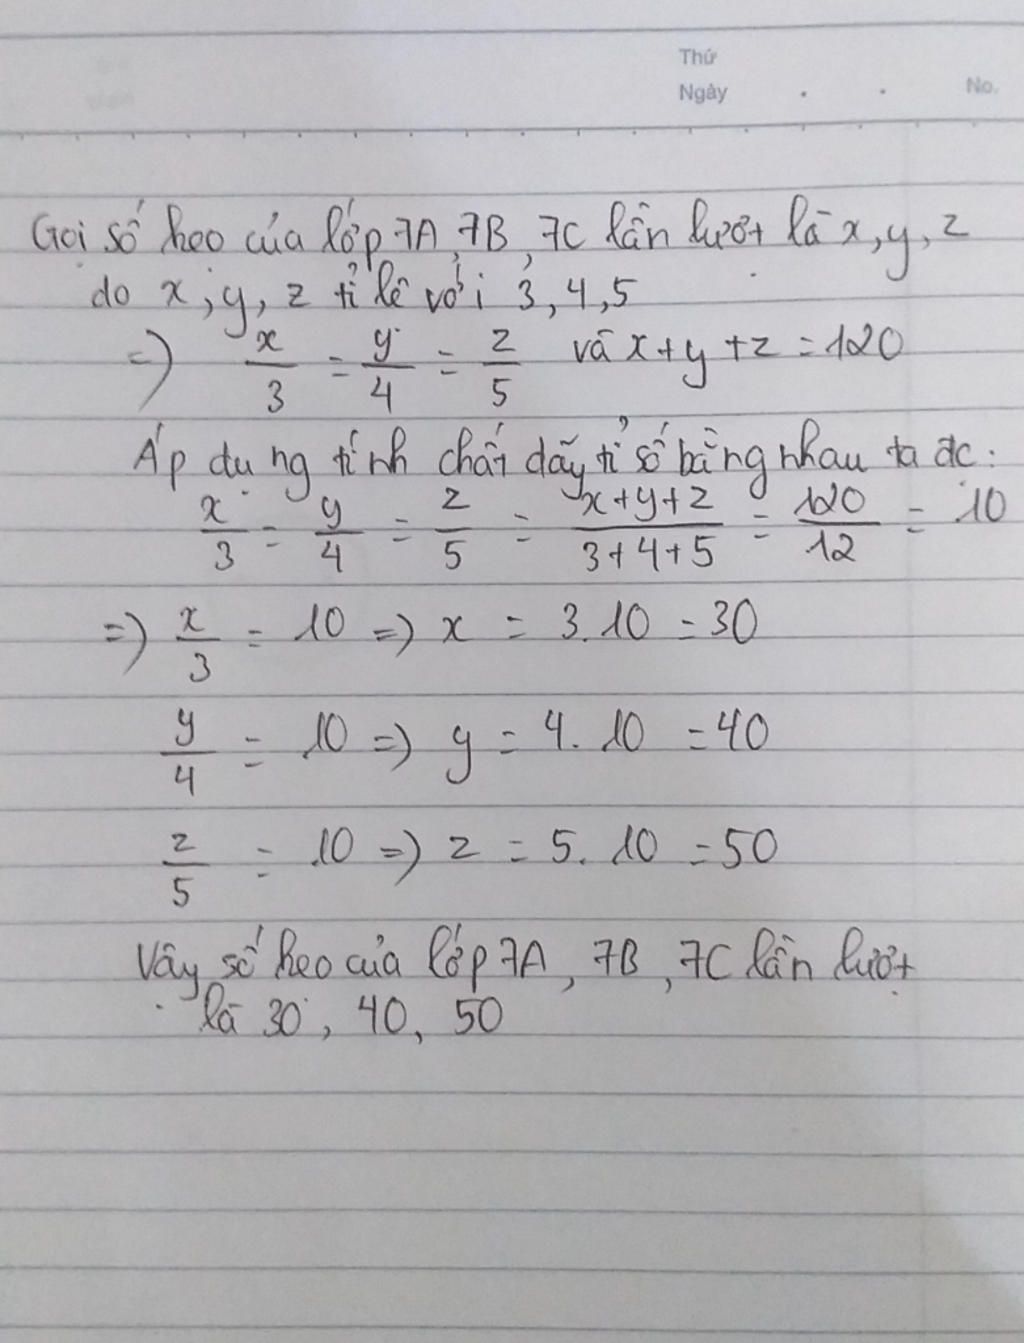 Thứ
Ngày . . No.
Gọi số heo của lớp 7A, 7B, 7C lần lượt là x, y, z
do x, y, z tỉ lệ với 3, 4, 5
=) x/3 = y/4 = z/5 và x+y+z = 120
Áp dụng tính chất dãy tỉ số bằng nhau ta đc:
x/3 = y/4 = z/5 = x+y+z/3+4+5 = 120/12 = 10
=) x/3 = 10 =) x = 3.10 = 30
y/4 = 10 =) y = 4.10 = 40
z/5 = 10 =) z = 5.10 = 50
Vậy số heo của lớp 7A, 7B, 7C lần lượt
là 30, 40, 50